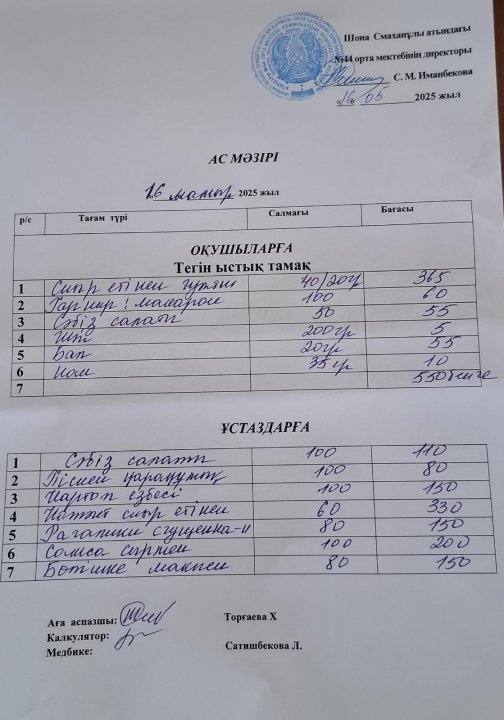 Шона Смаханұлы атындағы
№44 орта мектебінің директоры
С. М. Иманбекова
16 05 2025 жыл
АС МӘЗІРІ
16 мамыр 2025 жыл
р/с Тағам түрі Салмағы Бағасы
ОҚУШЫЛАРҒА
Тегін ыстық тамақ
1 Сиыр етінен гуляш 40/20гр 365
2 Гарнир: макарон 100 60
3 Сәбіз салаты 50 55
4 Шай 200гр 5
5 Бал 20гр 55
6 Нан 35гр 10
7 550теңге
ҰСТАЗДАРҒА
1 Сәбіз салаты 100 110
2 Піскен қарақұмық 100 80
3 Картоп езбесі 100 150
4 Котлет сиыр етінен 60 330
5 Рагалики сгущенка 80 150
6 Сомса сырмен 100 200
7 Бөтішке макпен 80 150
Аға аспазшы: Торғаева Х
Калкулятор:
Медбике: Сатишбекова Л.